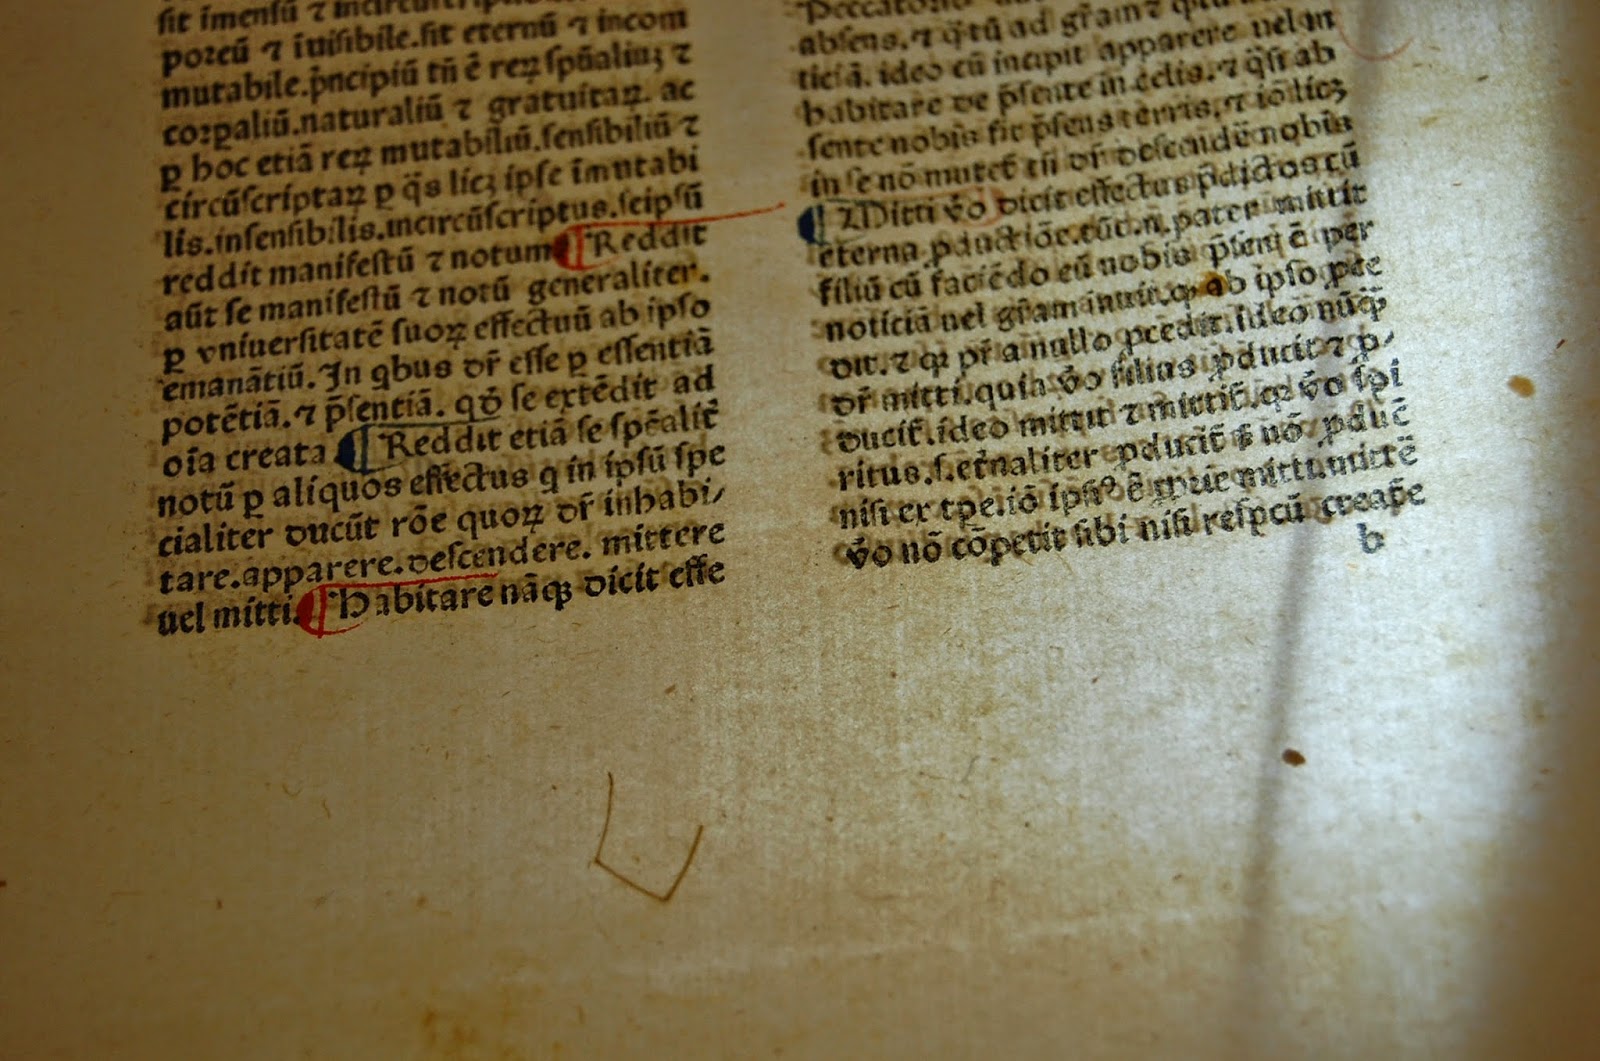 sit īmensū ⁊
poꝛeū ⁊ īuisibile.sit eternū ⁊ incom
mutabile.p̄ncipiū tn̄ ē reꝝ sp̄ualiuꝫ ⁊
coꝛpaliū.naturaliū ⁊ gratuitaꝝ. ac
ꝑ hoc etiā reꝝ mutabiliū.sensibiliū ⁊
circūscriptaꝝ ꝑ q̄s licꝫ ipse īmutabi
lis.insensibilis.incircūscriptus.seipsū
reddit manifestū ⁊ notum ¶ Reddit
aūt se manifestū ⁊ notū generaliter.
ꝑ vniuersitatē suoꝝ effectuū ab ipso
emanātiū. In qbus dr̄ esse ꝑ essentiā
potētiā. ⁊ p̄sentiā. qd̄ se extēdit ad
oīa creata ¶ Reddit etiā se sp̄ealit̄
notū ꝑ aliquos effectus q in ipsū spe
cialiter ducūt rōe quoꝝ dr̄ inhabi/
tare.apparere.descendere. mittere
uel mitti. ¶ Habitare nāqꝫ dicit effe
absens. ⁊ q̄tū ad gr̄am ⁊
ticiā. ideo cū incipit apparere uel in
habitare de p̄sente in celis. ⁊ q̄si ab
sente nobis fit p̄sens terris. ⁊ iō licꝫ
in se nō mutet̄ tn̄ dr̄ descendē nobis
¶ Mitti v̄o dicit effectus p̄dictos cū
eterna ꝓductiōe. tūc.n. pater mittit
filiū cū faciēdo eū nobis p̄sentē per
noticiā uel gr̄am inuit. ꝙ ab ipso ꝓce
dit. ⁊ ꝙ pr̄ a nullo ꝓcedit. ideo nūꝙ̄
dr̄ mitti. quia v̄o filius ꝓducit ⁊ ꝓ/
ducit̄. ideo mittit ⁊ mittit̄. ꝙ v̄o spi
ritus.s. et̄naliter ꝓducit̄ ⁊ nō ꝓducē
nisi ex tp̄e. iō ē mitti. mittē
v̄o nō cōpetit sibi nisi respcū creat̄e
b